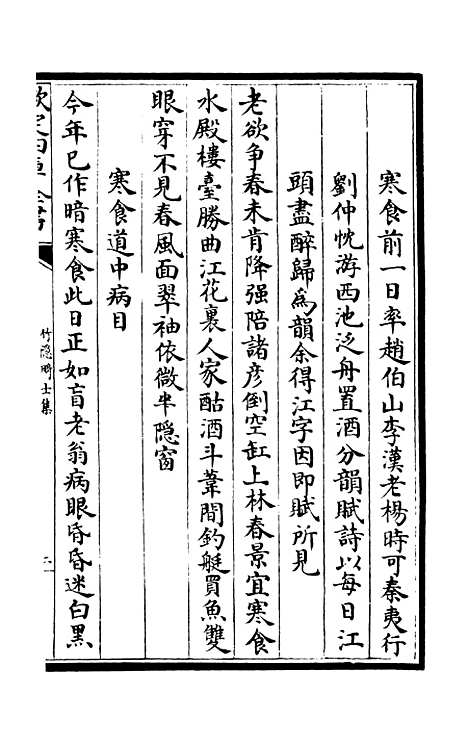 寒食前一日率趙伯山李漢老楊時可秦夷行
劉仲忱游西池泛舟置酒分韻賦詩以每日江
頭盡醉歸為韻余得江字因即賦所見
老欲争春未肯降强陪諸彦倒空缸上林春景宜寒食
水殿樓臺勝曲江花裏人家酤酒斗葦間釣艇買魚雙
眼穿不見春風面翠袖依微半隱窗
寒食道中病目
今年已作暗寒食此日正如盲老翁病眼昏昏迷白黑
欽定四庫全書
竹隐畸士集